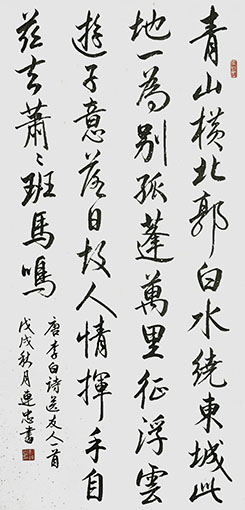 青山橫北郭白水繞東城此
地一為別孤蓬萬里征浮雲
遊子意落日故人情揮手自
茲去蕭〻班馬鳴
唐李白詩送友人一首
戊戌秋月連忠書